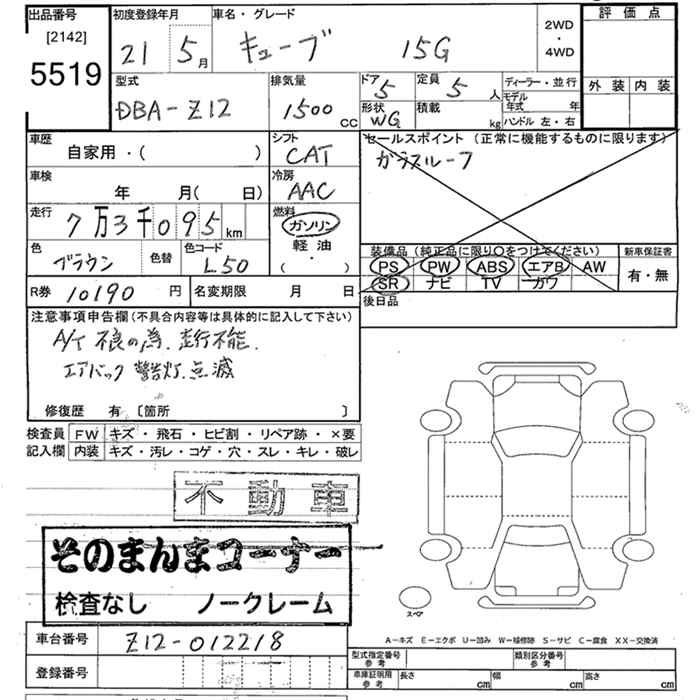 出品番号
[2142]
5519
初度登録年月
21 5月
車名・グレード
キューブ 15G
2WD
・
4WD
評価点
外装 内装
型式
DBA-Z12
排気量
1500 CC
ドア
5
定員
5 人
形状
WG
積載
kg
ディーラー・並行
モデル
年式 年
ハンドル 左・右
車歴
自家用・( )
シフト
CAT
車検
年 月( 日)
冷房
AAC
走行
7万3千095km
燃料
ガソリン
軽油
( ・ )
色
ブラウン
色替
色コード
L50
セールスポイント (正常に機能するものに限ります)
ガラスルーフ
装備品 (純正品に限り〇をつけてください)
PS PW ABS エアB AW
SR ナビ TV カワ
新車保証書
有・無
R券 10190 円
名変期限 月 日
後日品
注意事項申告欄 (不具合内容等は具体的に記入して下さい)
A/T 不良の為、走行不能.
エアバック 警告灯.点滅
修復歴 有 [箇所 ]
検査員 FW キズ・飛石・ヒビ割・リペア跡・×要
記入欄 内装 キズ・汚レ・コゲ・穴・スレ・キレ・破レ
不動車
そのまんまコーナー
検査なし ノークレーム
スペア
A-キズ E-エクボ U-凹み W-補修跡 S-サビ C-腐食 XX-交換済
車台番号 Z12-012218
登録番号
型式指定番号
参考
類別区分番号
参考
車庫証明用
参考
長さ cm 幅 cm 高さ cm